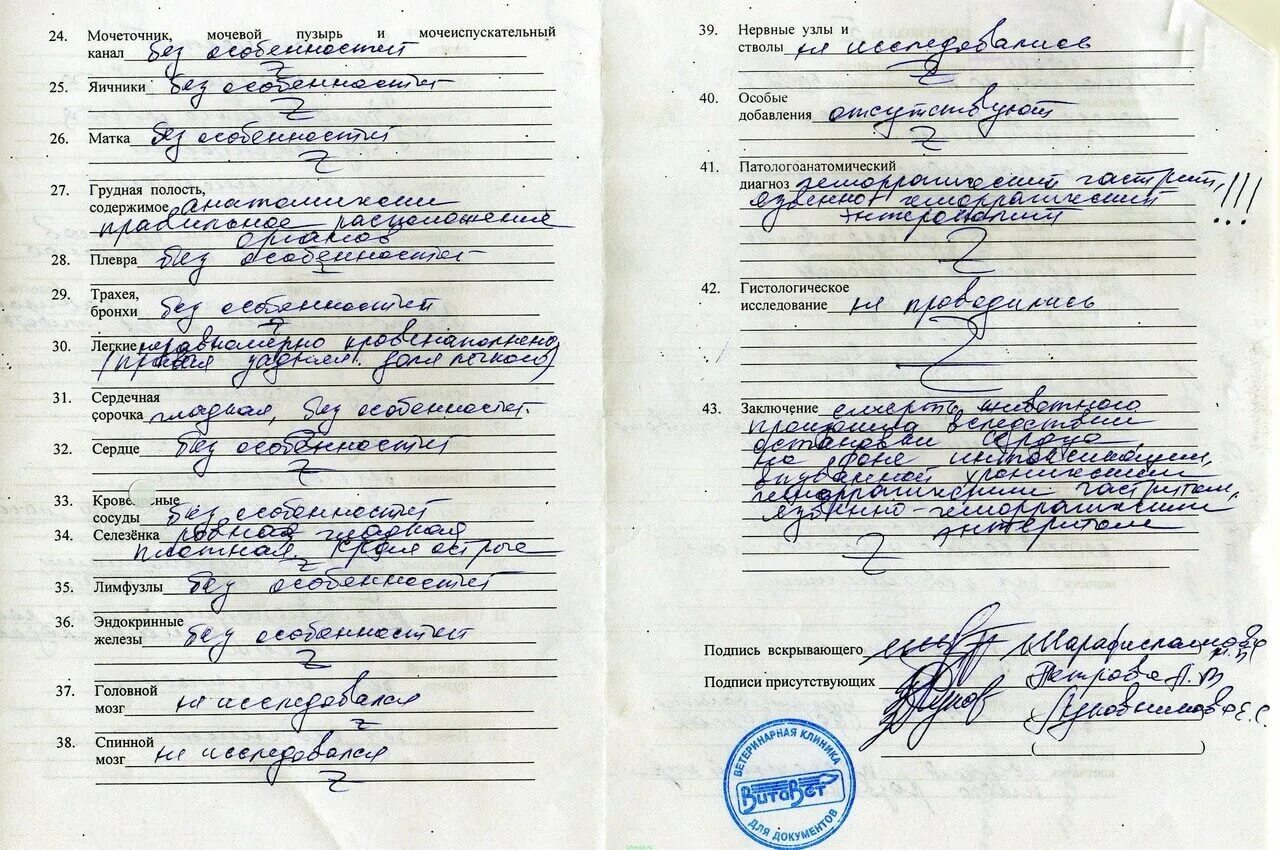 24. Мочеточник, мочевой пузырь и мочеиспускательный
канал без особенностей
25. Яичники без особенностей
26. Матка без особенностей
27. Грудная полость,
содержимое анатомически
правильное расположение
органов
28. Плевра без особенностей
29. Трахея,
бронхи без особенностей
30. Легкие неравномерно кровенаполнено
(правая задняя доля легкого)
31. Сердечная
сорочка гладкая, без особенностей.
32. Сердце без особенностей
33. Крове ные
сосуды без особенностей
34. Селезёнка ровная гладкая
плотная. Края острые
35. Лимфузлы без особенностей
36. Эндокринные
железы без особенностей
37. Головной
мозг не исследовался
38. Спинной
мозг не исследовался
39. Нервные узлы и
стволы не исследовались
40. Особые
добавления отсутствуют
41. Патологоанатомический
диагноз геморрагический гастрит, !!!
язвенно-геморрагический
42. Гистологическое
исследование не проводились
43. Заключение смерть животного
произошла вследствии
остановки сердца
на фоне интоксикации,
вызванной хроническим
геморрагическим гастритом,
язвенно-геморрагическим
энтеритом
Подпись вскрывающего
Подписи присутствующих Петрова
ВЕТЕРИНАРНАЯ КЛИНИКА
ВитаВет
ДЛЯ ДОКУМЕНТОВ